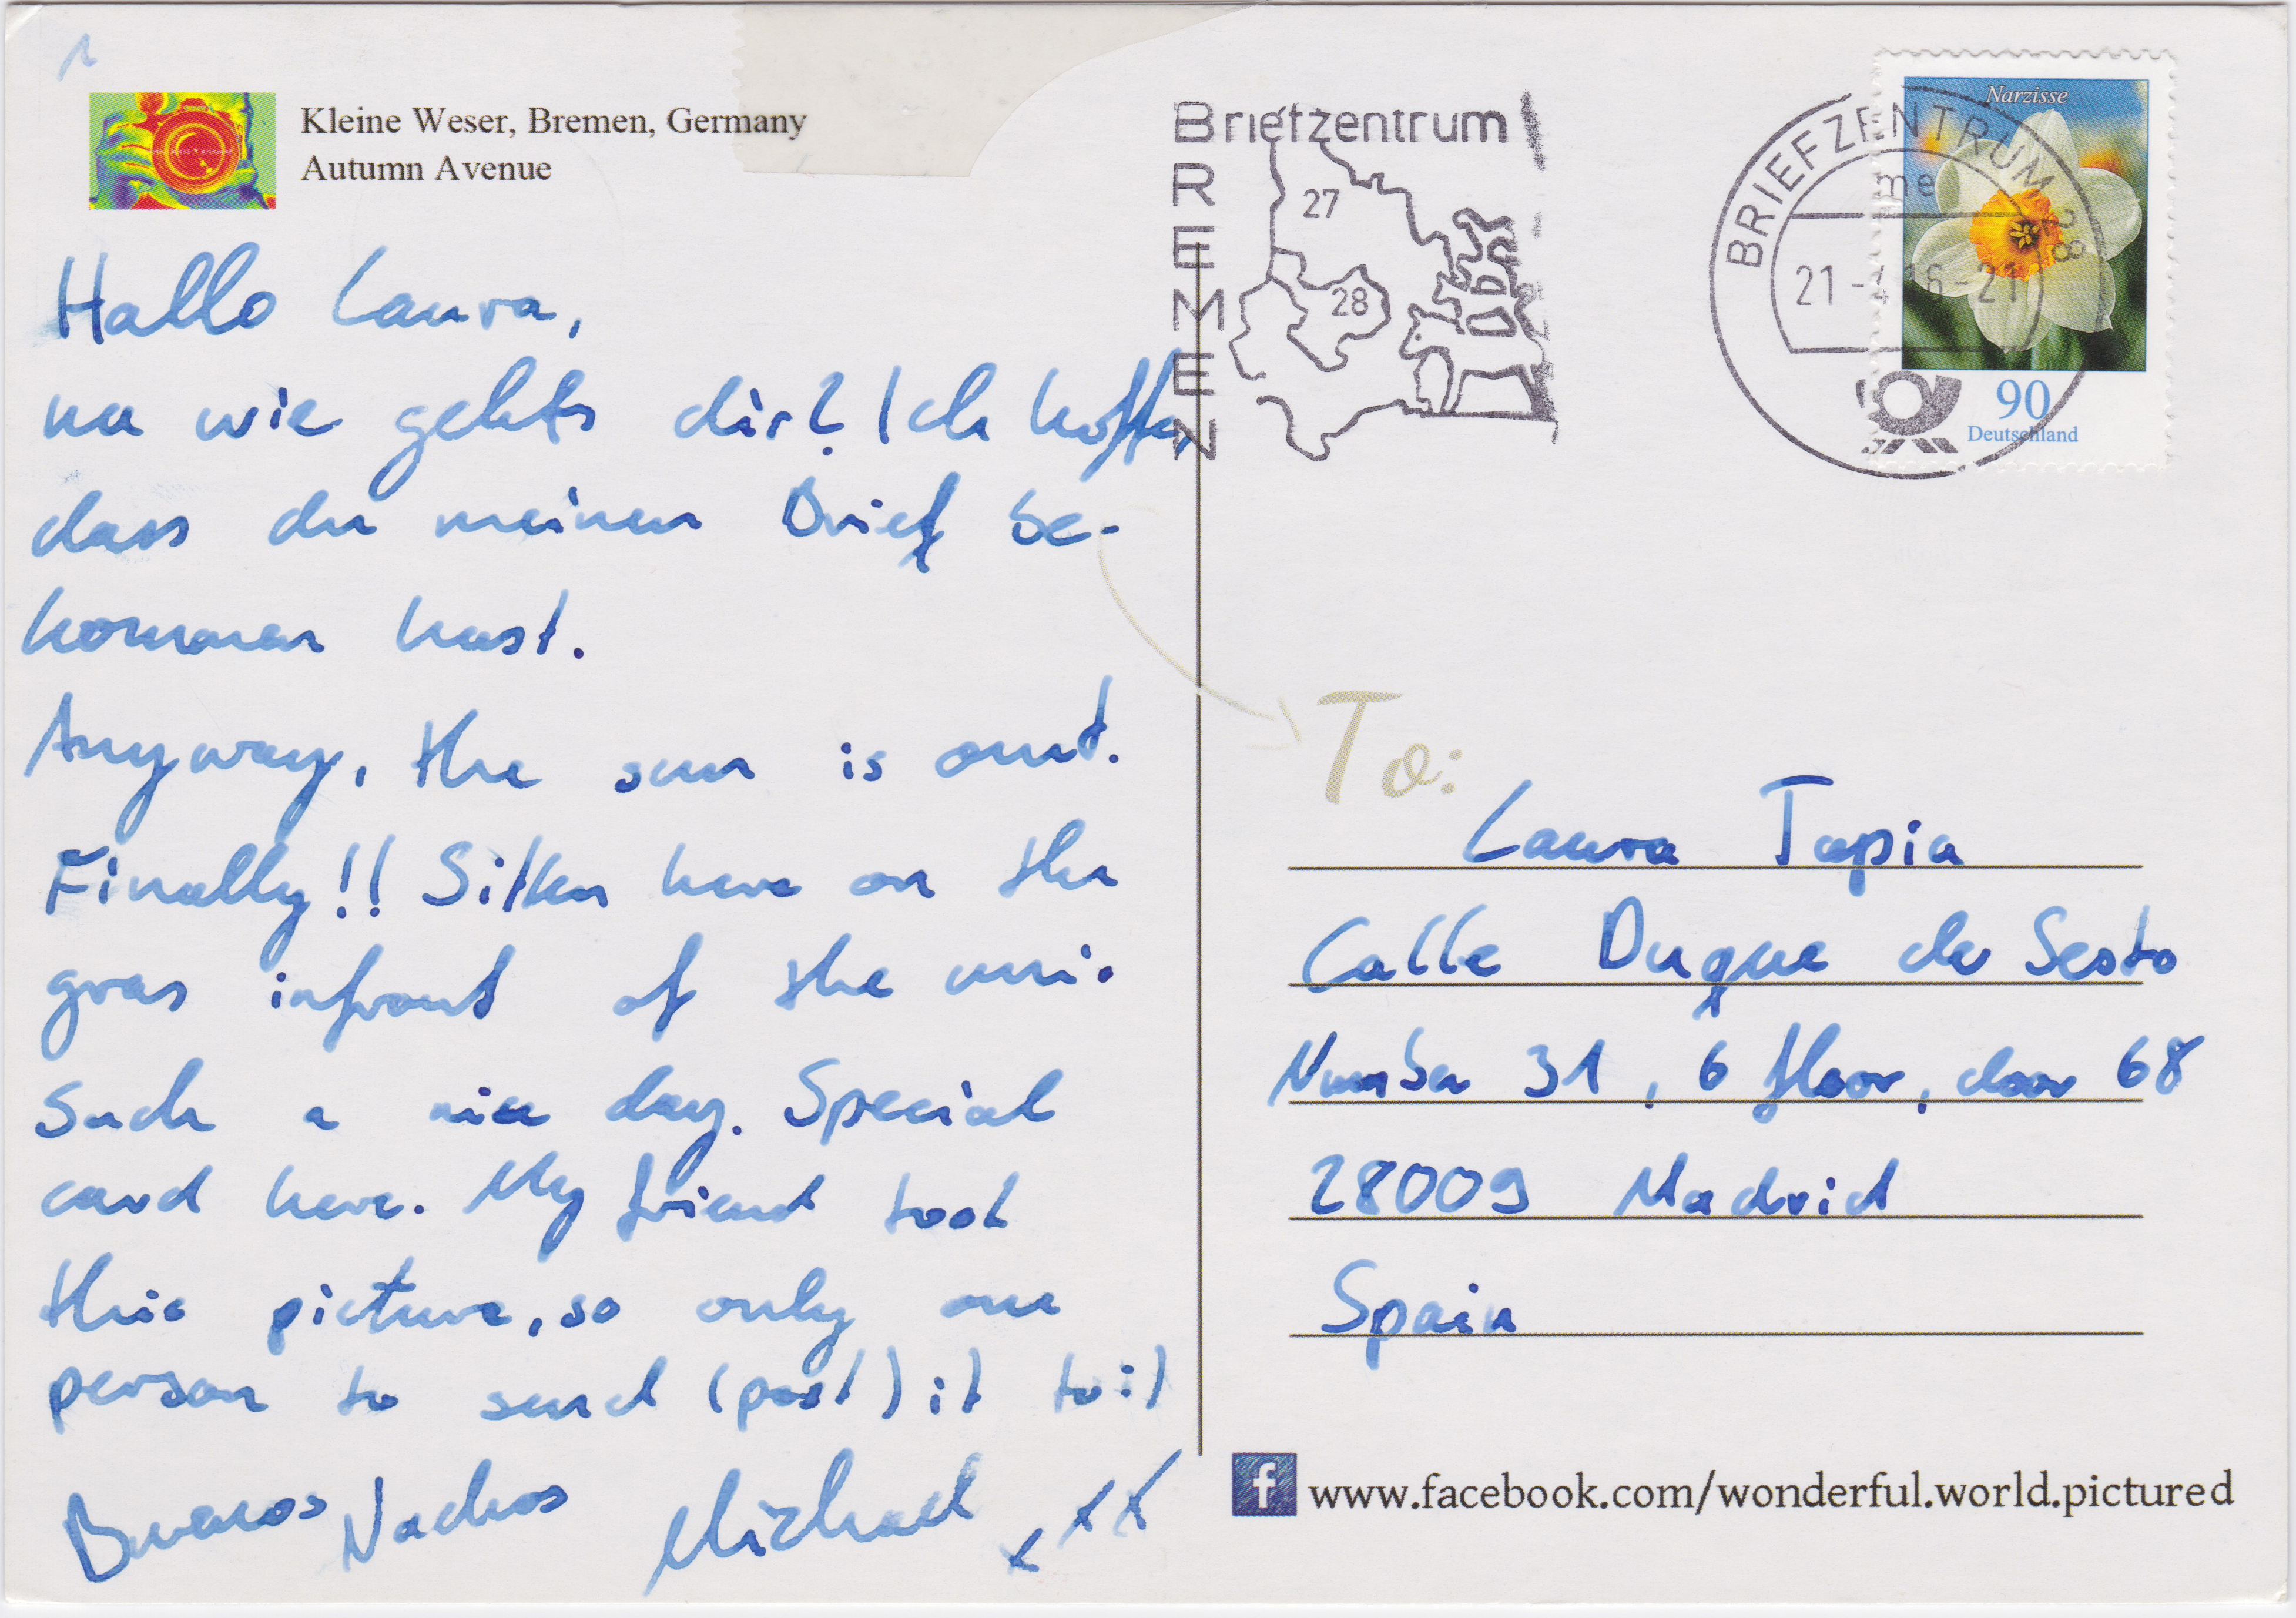 Kleine Weser, Bremen, Germany
Autumn Avenue
Hallo Laura,
na wie gehts dir? Ich hoffe,
dass du meinen Brief be-
kommen hast.
Anyway, the sun is out.
Finally!! Sitten here on the
gras infront of the uni.
Such a nice day. Special
card here. My friend took
this picture, so only one
person to send (post) it to :)
Buenos Nachos Michael xxx
Briefzentrum
BREMEN
27
28
BRIEFZENTRUM 28
me
21-4 16-21
Narzisse
90
Deutschland
To:
Laura Tapia
Calle Duque de Sesto
Number 31, 6 floor, door 68
28009 Madrid
Spain
f www.facebook.com/wonderful.world.pictured